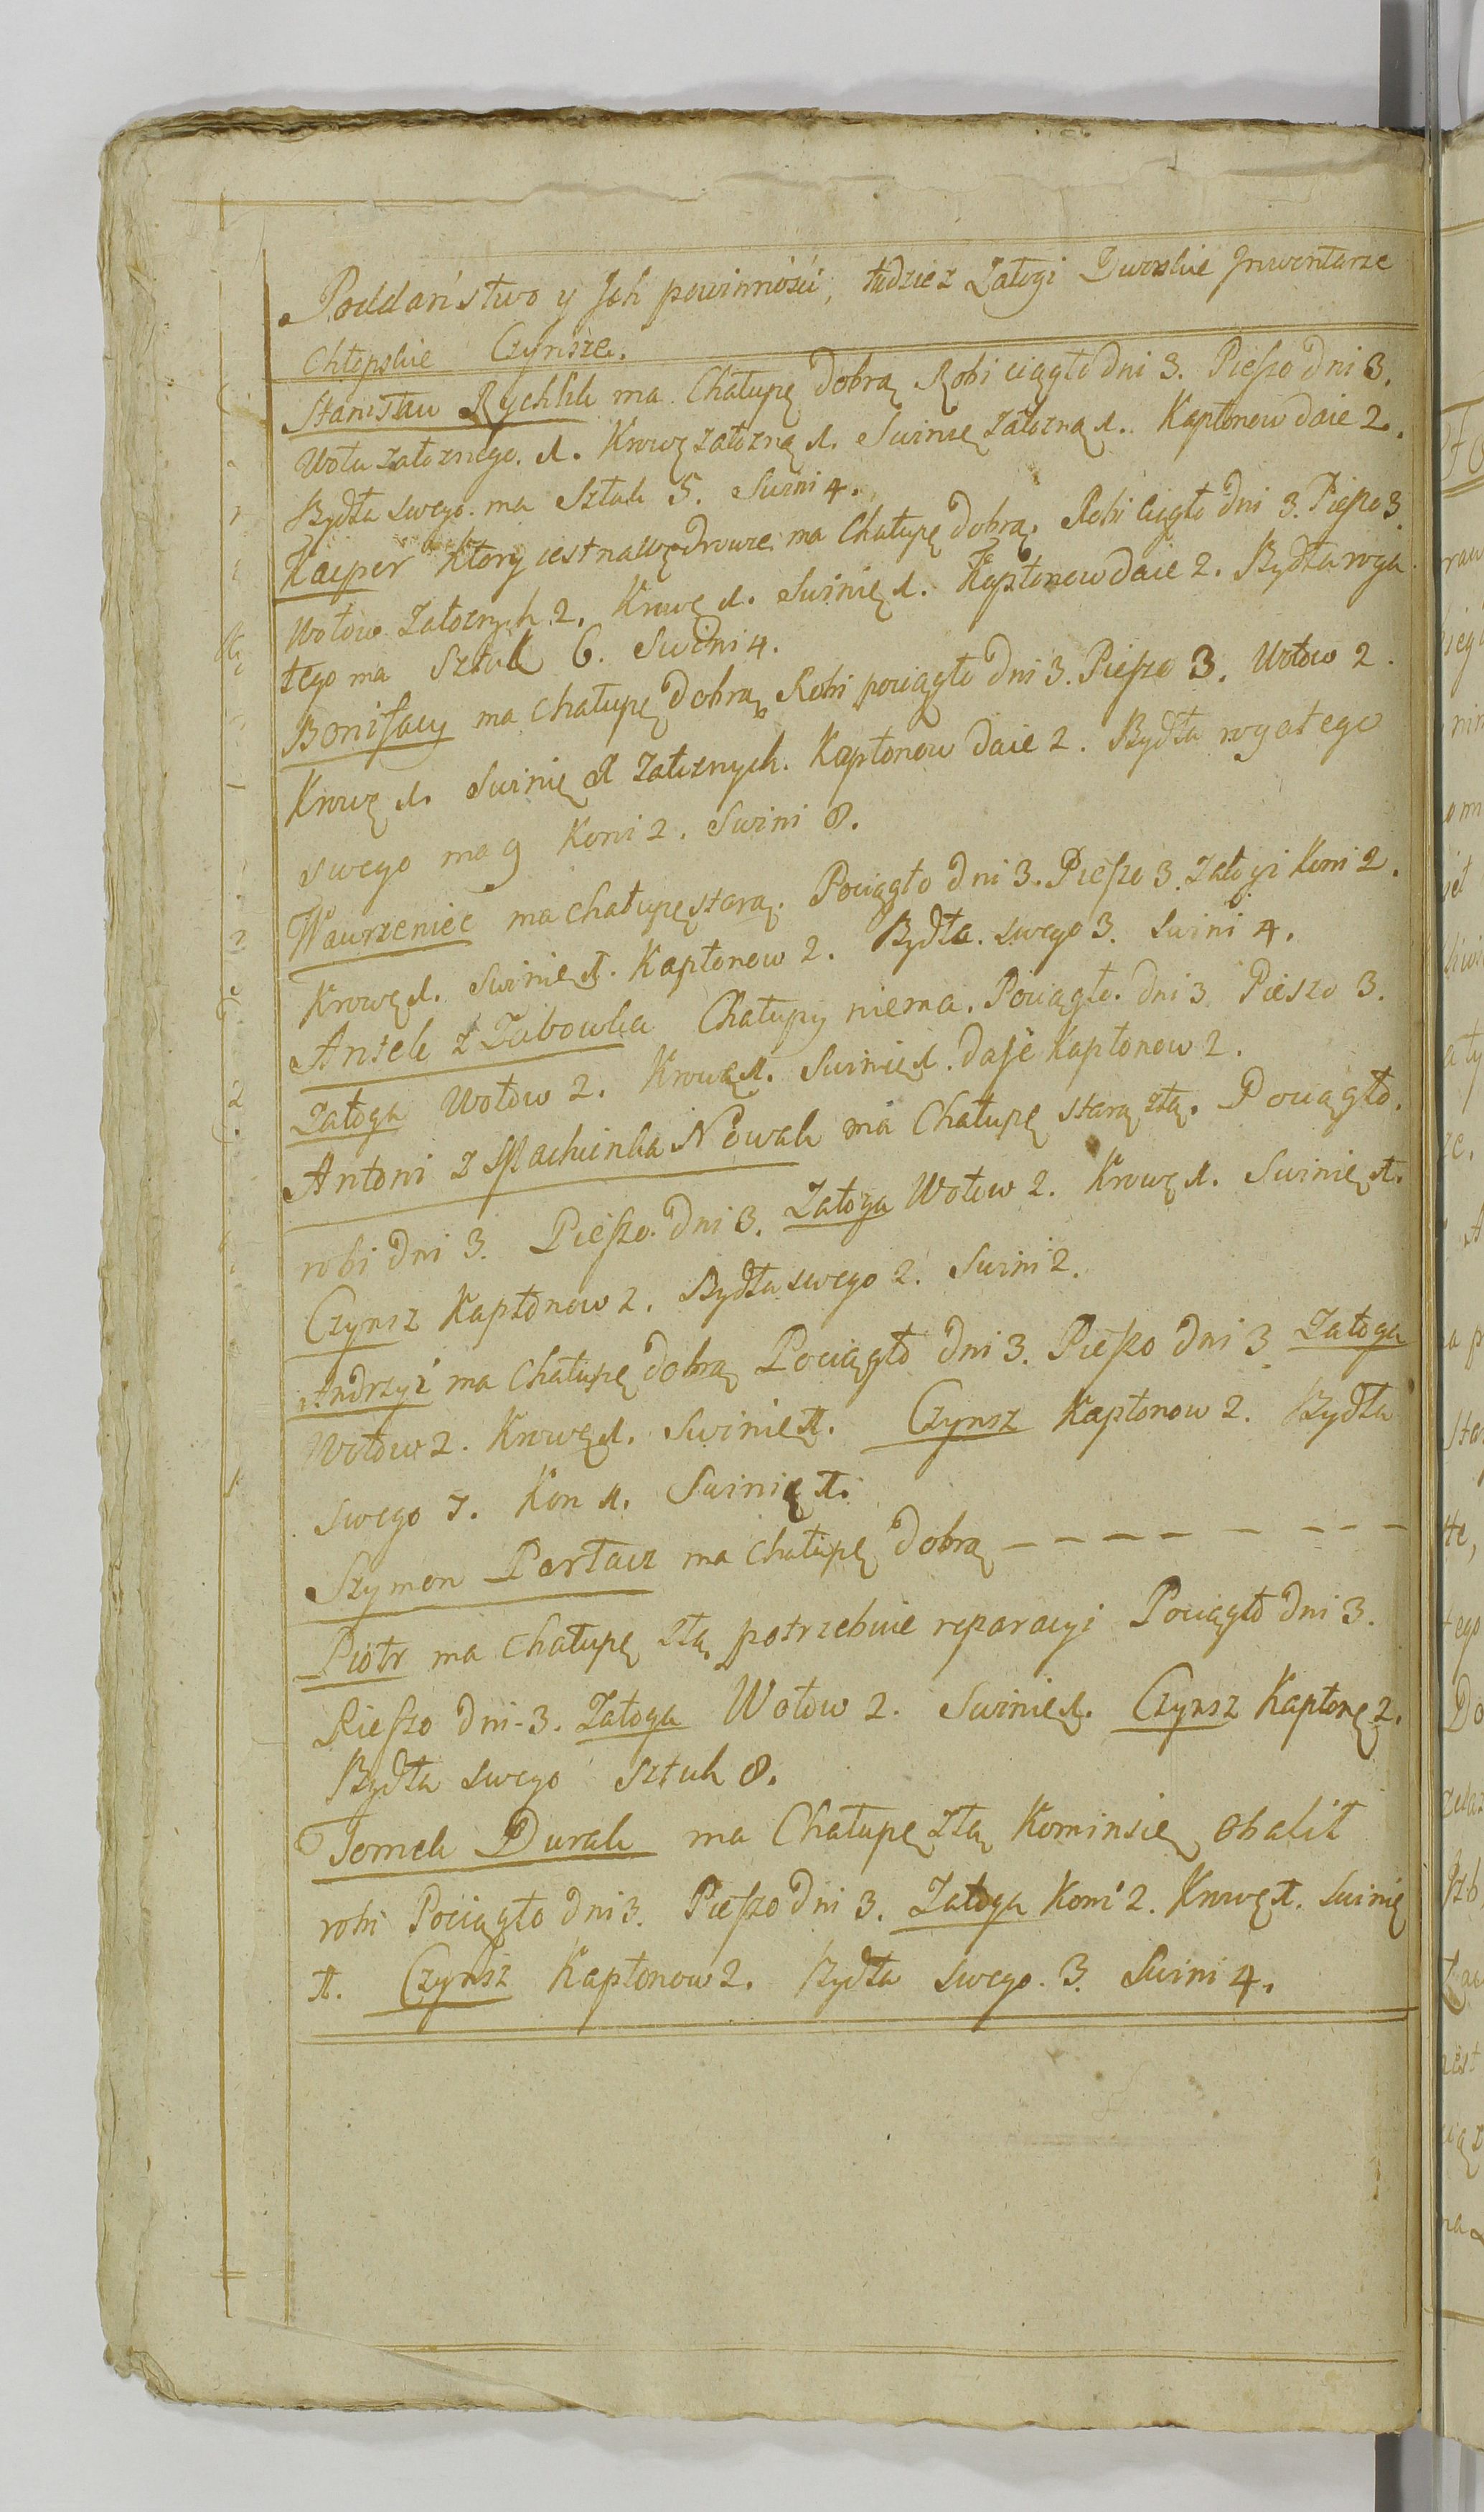 Poddaństwo y Jch powinności, tudziez Załogi Dworskie Jnwentarze
Chłopskie Czynsze.
Stanisław Rychlik ma Chałupę dobrą Robi ciągło dni 3. Pieszo dni 3.
Wołu załoznego. 1. Krowę załozną 1. Swinię załozną 1. Kapłonow daie 2.
Bydła swego ma Sztuk 5. Swini 4.
Kacper ktory iest na Wędrowce ma Chałupę dobrą. Robi ciągło dni 3. Pieszo 3.
Wołow Załoznych 2. Krowę 1. Swinię 1. Kapłonow daie 2. Bydła roga
tego ma Sztuk 6. Swini 4.
Bonifacy ma chałupę dobrą Robi pociągło dni 3. Pieszo 3. Wołow 2.
Krowę 1. Swinię 1 załoznych. Kapłonow daie 2. Bydła rogatego
swego ma 9 Koni 2. Swini 8.
Wawrzeniec ma chałupę starą. Pociągło dni 3. Pieszo 3. Załogi Koni 2.
Krowę 1. Swinię 1. Kapłonow 2. Bydła swego 3. Swini 4.
Antek z Chałupy niema. Pociągło dni 3 Pieszo 3.
Załoga Wołow 2. Krowę 1. Swinię 1. daje Kapłonow 2.
Antoni z Nowak ma Chałupę starą złą. Pociągło.
robi dni 3. Pieszo dni 3. Załoga Wołow 2. Krowę 1. Swinię 1.
Czynsz Kapłonow 2. Bydła swego 2. Swini 2.
Andrzyi ma Chałupę dobrą Pociągło dni 3. Pieszo dni 3 Załoga
Wołow 2. Krowę 1. Swinię 1. Czynsz Kapłonow 2. Bydła
swego 7. Kon 1. Swinię 1.
Szymon Partacz ma chałupę dobrą - - - - - - - -
Piotr ma chałupę złą potrzebuie reparacyi Pociągło dni 3.
Pieszo dni 3. Załoga Wołow 2. Swinię 1. Czynsz Kapłonę 2.
Bydła swego Sztuk 8.
Tomek Durak ma Chałupę złą Kominsię obalił
robi Pociągło dni 3. Pieszo dni 3. Załoga Koni 2. Krowę 1. Swinię
1. Czynsz Kapłonow 2. Bydła swego 3. Swini 4.